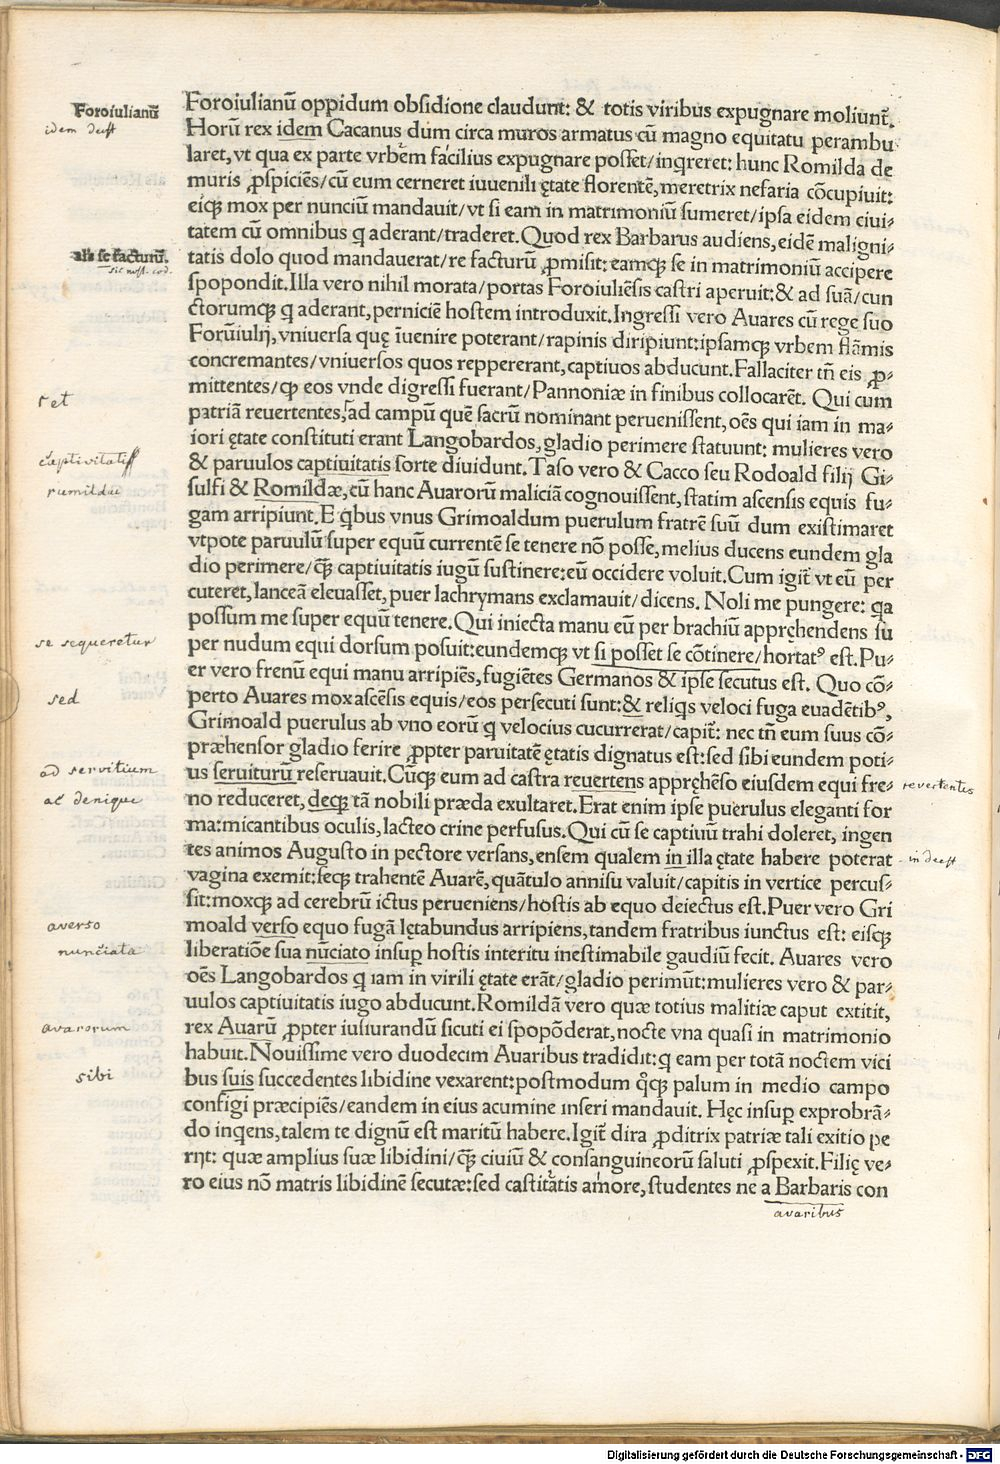 Foroiulianū
idem deest
Foroiulianū oppidum obsidione claudunt: & totis viribus expugnare moliunt̄.
Horū rex idem Cacanus dum circa muros armatus cū magno equitatu perambu
laret, vt qua ex parte vrbem facilius expugnare posset/inqreret: hunc Romilda de
muris ꝓspiciēs/cū eum cerneret iuuenili ętate florentē, meretrix nefaria cōcupiuit:
eiqꝫ mox per nunciū mandauit/vt si eam in matrimoniū sumeret/ipsa eidem ciui⸗
tatem cū omnibus q aderant/traderet. Quod rex Barbarus audiens, eidē maligni⸗
als se facturū.
sic nost. cod.
tatis dolo quod mandauerat/re facturū ꝓmisit: eamqꝫ se in matrimoniū accipere
spopondit. Illa vero nihil morata/portas Foroiuliēsis castri aperuit: & ad suā/cun
ctorumqꝫ q aderant, perniciē hostem introduxit. Ingressi vero Auares cū rege suo
Forūiulij, vniuersa quę īuenire poterant/rapinis diripiunt: ipsamqꝫ vrbem flāmis
concremantes/vniuersos quos reppererant, captiuos abducunt. Fallaciter tn̄ eis ꝓ⸗
mittentes/ꝙ eos vnde digressi fuerant/Pannoniæ in finibus collocarēt. Qui cum
et
patriā reuertentes, ad campū quē sacrū nominant peruenissent, oēs qui iam in ma⸗
iori ętate constituti erant Langobardos, gladio perimere statuunt: mulieres vero
captivitatis
& paruulos captiuitatis sorte diuidunt. Taso vero & Cacco seu Rodoald filij Gi⸗
rumildae
sulfi & Romildæ, cū hanc Auarorū maliciā cognouissent, statim ascensis equis fu⸗
gam arripiunt. E qbus vnus Grimoaldum puerulum fratrē suū dum existimaret
vtpote paruulū super equū currentē se tenere nō posse, melius ducens eundem gla
dio perimere/ꝙ̄ captiuitatis iugū sustinere: eū occidere voluit. Cum igit̄ vt eū per
cuteret, lanceā eleuasset, puer lachrymans exclamauit/dicens. Noli me pungere: qa
possum me super equū tenere. Qui iniecta manu eū per brachiū appręhendens sū
se sequeretur
per nudum equi dorsum posuit: eundemqꝫ vt si posset se cōtinere/hortatꝰ est. Pu⸗
er vero frenū equi manu arripiēs, fugiētes Germanos & ipse secutus est. Quo cō⸗
sed
perto Auares mox ascēsis equis/eos persecuti sunt: & reliqs veloci fuga euadētibꝰ,
Grimoald puerulus ab vno eorū q velocius cucurrerat/capit̄: nec tn̄ eum suus cō⸗
præhensor gladio ferire ꝓpter paruitatē ętatis dignatus est: sed sibi eundem poti⸗
ad servitium
us seruiturū reseruauit. Cūqꝫ eum ad castra reuertens appręhēso eiusdem equi fre⸗
revertentes
ac denique
no reduceret, deqꝫ tā nobili præda exultaret. Erat enim ipse puerulus eleganti for
ma: micantibus oculis, lacteo crine perfusus. Qui cū se captiuū trahi doleret, ingen
tes animos Augusto in pectore versans, ensem qualem in illa ętate habere poterat
in deest
vagina exemit: seqꝫ trahentē Auarē, quātulo annisu valuit/capitis in vertice percus⸗
sit: moxqꝫ ad cerebrū ictus perueniens/hostis ab equo deiectus est. Puer vero Gri
averso
moald verso equo fugā lętabundus arripiens, tandem fratribus iunctus est: eisqꝫ
nunciata
liberatiōe sua nūciato insuꝑ hostis interitu inestimabile gaudiū fecit. Auares vero
oēs Langobardos q iam in virili ętate erāt/gladio perimūt: mulieres vero & par⸗
uulos captiuitatis iugo abducunt. Romildā vero quæ totius malitiæ caput extitit,
avarorum
rex Auarū ꝓpter iusiurandū sicuti ei spopōderat, nocte vna quasi in matrimonio
habuit. Nouissime vero duodecim Auaribus tradidit: q eam per totā noctem vici
sibi
bus suis succedentes libidine vexarent: postmodum qͦqꝫ palum in medio campo
configi præcipiēs/eandem in eius acumine inseri mandauit. Hęc insuꝑ exprobrā⸗
do inqens, talem te dignū est maritū habere. Igit̄ dira ꝓditrix patriæ tali exitio pe
rijt: quæ amplius suæ libidini/ꝙ̄ ciuiū & consanguineorū saluti ꝓspexit. Filię ve⸗
ro eius nō matris libidinē secutæ: sed castitatis amore, studentes ne a Barbaris con
avaribus
Digitalisierung gefördert durch die Deutsche Forschungsgemeinschaft - DFG